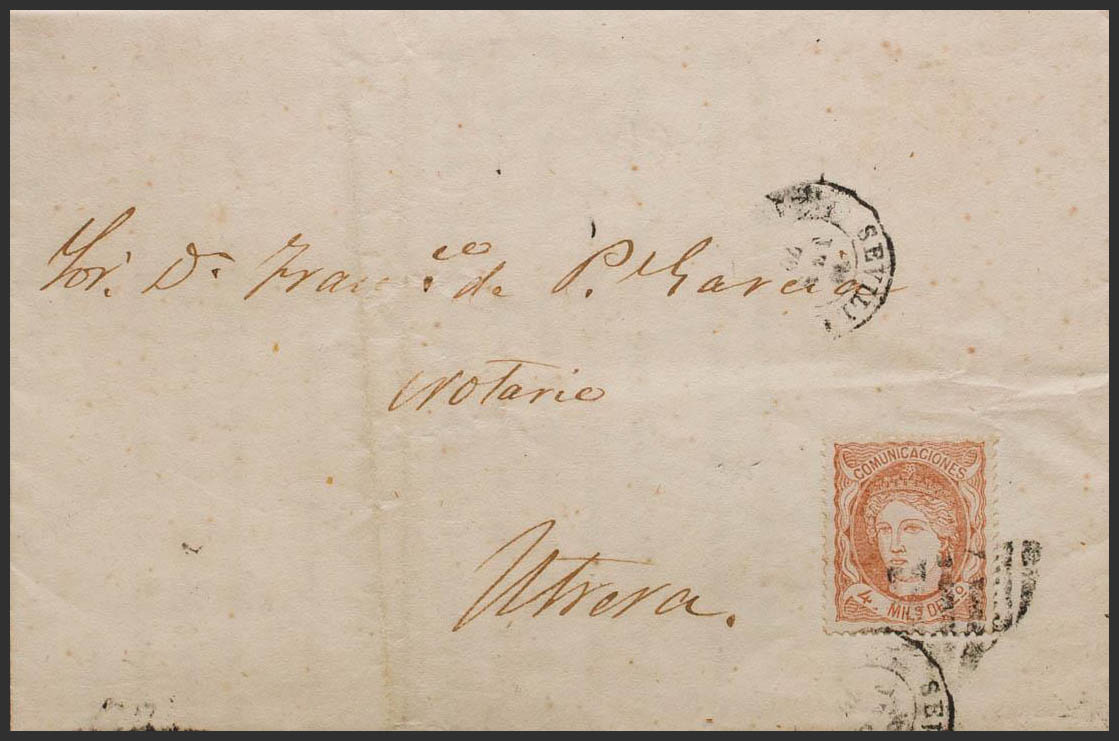 Sor. Dn. Franco. de P. Garcia
Notario
Utrera.
SEVILL
COMUNICACIONES
4. MILS DE Eo.
SEV